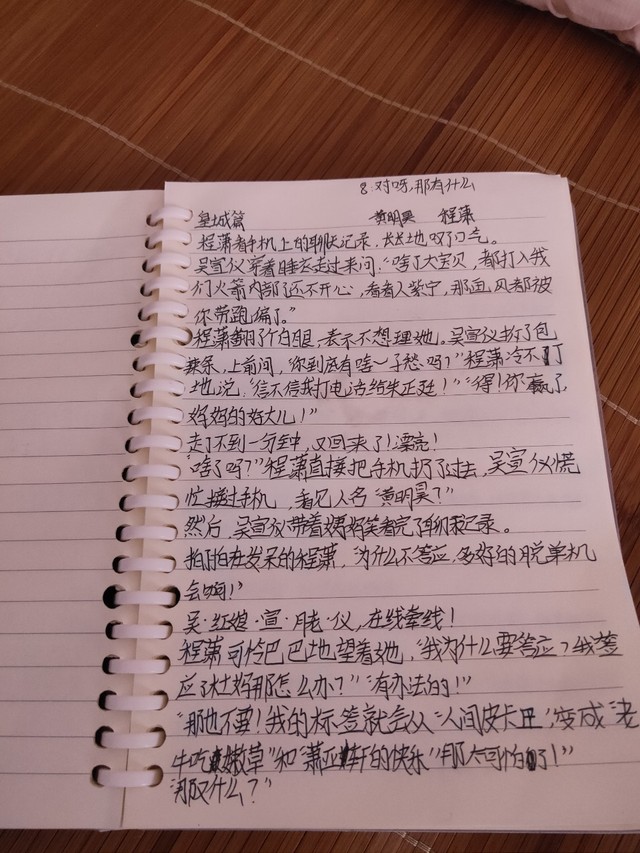 8.对呀,那有什么
皇城篇 黄明昊 程潇
程潇看手机上的聊天记录,长长地叹了口气。
吴宣仪穿着睡衣走过来问,“啥了大宝贝,都打入我
们火箭内部了还不开心,看看人紫宁,那画风都被
你带跑偏了。”
程潇翻了个白眼,表示不想理她。吴宣仪拆了包
辣条,上前问,“你到底有啥子愁吗?”程潇冷不丁
地说,“信不信我打电话给朱正廷!”“得!你赢了,
妈妈的好大儿!”
走了不到一分钟,又回来了!漂亮!
“啥了吗?”程潇直接把手机扔了过去,吴宣仪慌
忙接过手机,看见人名“黄明昊?”
然后,吴宣仪带着姨妈笑看完了聊天记录。
拍了拍在发呆的程潇,“为什么不答应,多好的脱单机
会啊!”
吴·红娘·宣·月老·仪,在线牵线!
程潇可怜巴巴地望着她,“我为什么要答应?我答
应了杜妈那怎么办?”“有办法的!”
“那也不要!我的标签就会从“人间皮卡丘”变成“老
牛吃嫩草”和“萧亚轩的快乐”那太可怕了!”
“那又什么?”